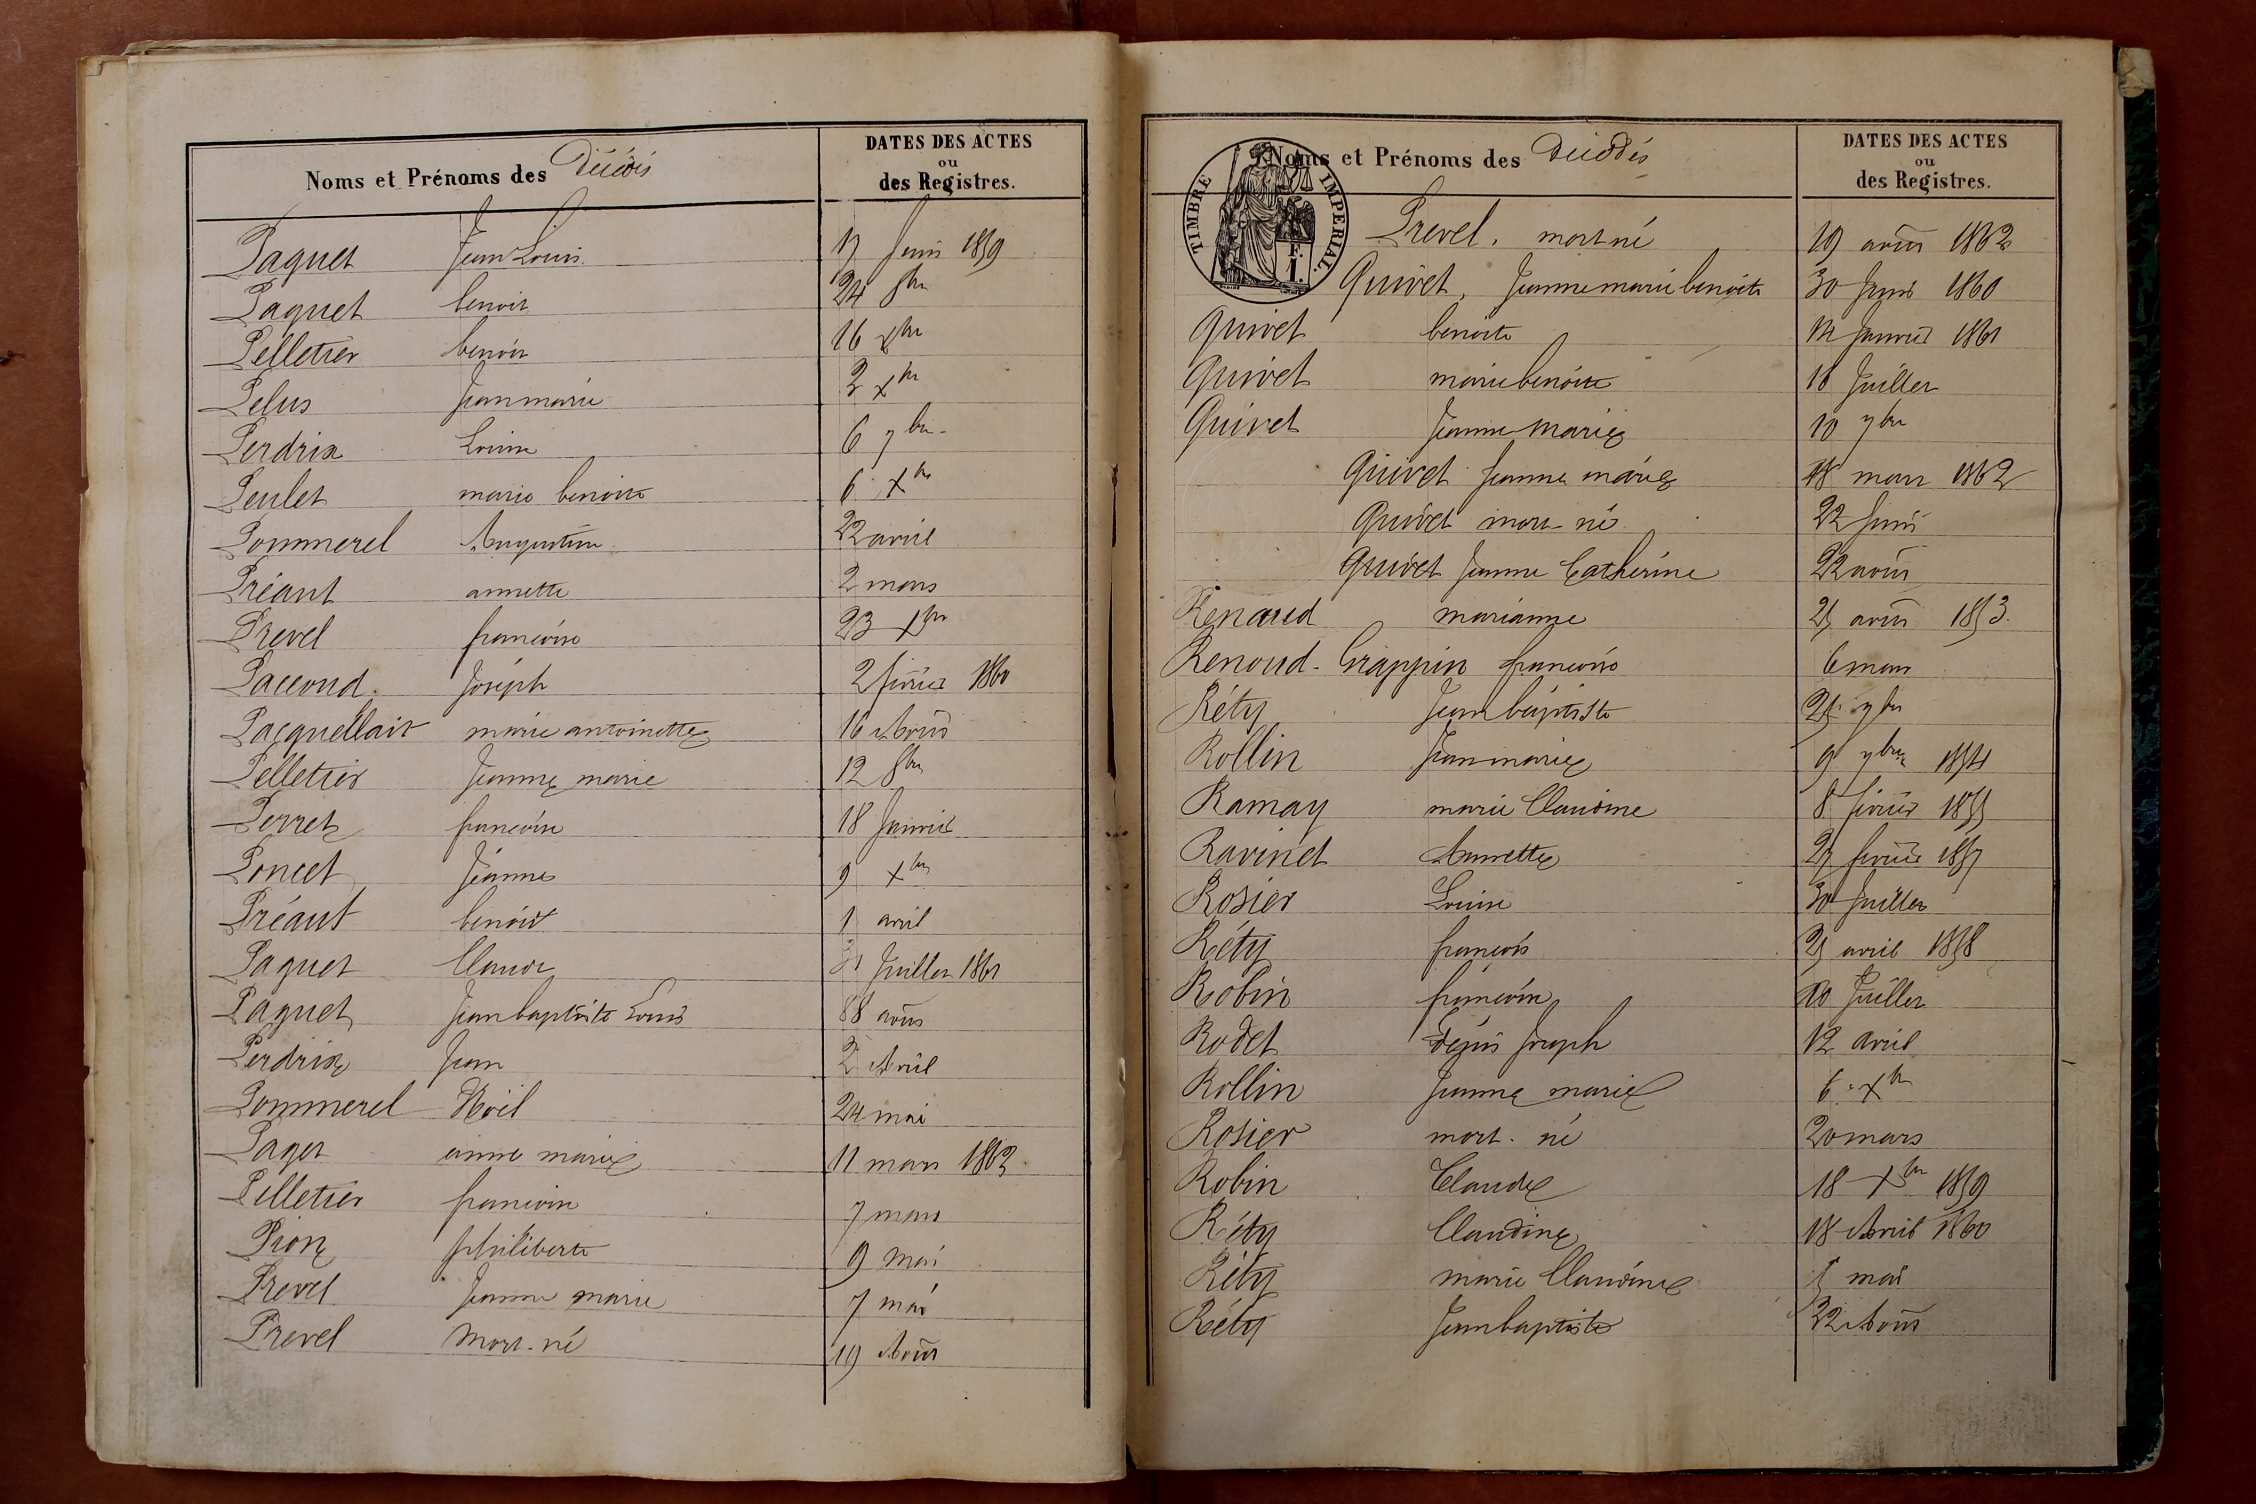 Noms et Prénoms des Décés
DATES DES ACTES
ou
des Registres.
Paquet Jean Louis 17 Juin 1859
Paquet benoit 24 8bre
Pelletier benoit 16 Xbre
Pelus Jean marie 2 Xbre
Perdrix Louise 6 7bre
Peulet marie benoite 6 Xbre
Pommerel Augustine 22 avril
Préant annette 2 mars
Prevel françoise 23 Xbre
Paccoud Joseph 2 février 1860
Pacquellait marie antoinette 16 Aout
Pelletier Jeanne marie 12 8bre
Perret françoise 18 Janvier
Poncet Jeanne 9 Xbre
Préaut benoit 1 avril
Paquet Claude Juillet 1861
Paquet Jean baptiste Louis aout
Perdrix Jean 2 Avril
Pommerel Noël 24 mai
Paget anne marie 11 mars 1862
Pelletier françoise 7 mars
Pion philiberte 9 mai
Prevel Jeanne marie 7 mai
Prevel Mort-né 19 Aout
Noms et Prénoms des Décédés
DATES DES ACTES
ou
des Registres.
TIMBRE IMPERIAL.
F.
1.
Prevel. mort né 19 aout 1862
Quivet, Jeanne marie benoite 30 Juin 1860
Quivet benoite 14 Janvier 1861
Quivet marie benoite 18 Juillet
Quivet Jeanne Marie 10 7bre
Quivet Jeanne marie 18 mars 1862
Quivet mort-né 22 Juin
Quivet Jeanne Catherine 22 aout
Renaud marianne 25 aout 1853.
Renoud-Grappin françoise 6 mars
Réty Jean baptiste 25 7bre
Rollin Jean marie 9 7bre 1854
Ramay marie Claudine 8 février 1855
Ravinet Annette 27 février 1857
Rosier Louise 30 Juillet
Réty françois 25 avril 1858
Robin françoise 20 Juillet
Rodet Denis Joseph 12 avril
Rollin Jeanne marie 6 Xbre
Rosier mort-né 20 mars
Robin Claude 18 Xbre 1859
Réty Claudine 18 Avril 1860
Réty marie Claudine 5 mai
Réty Jean baptiste 22 Aout